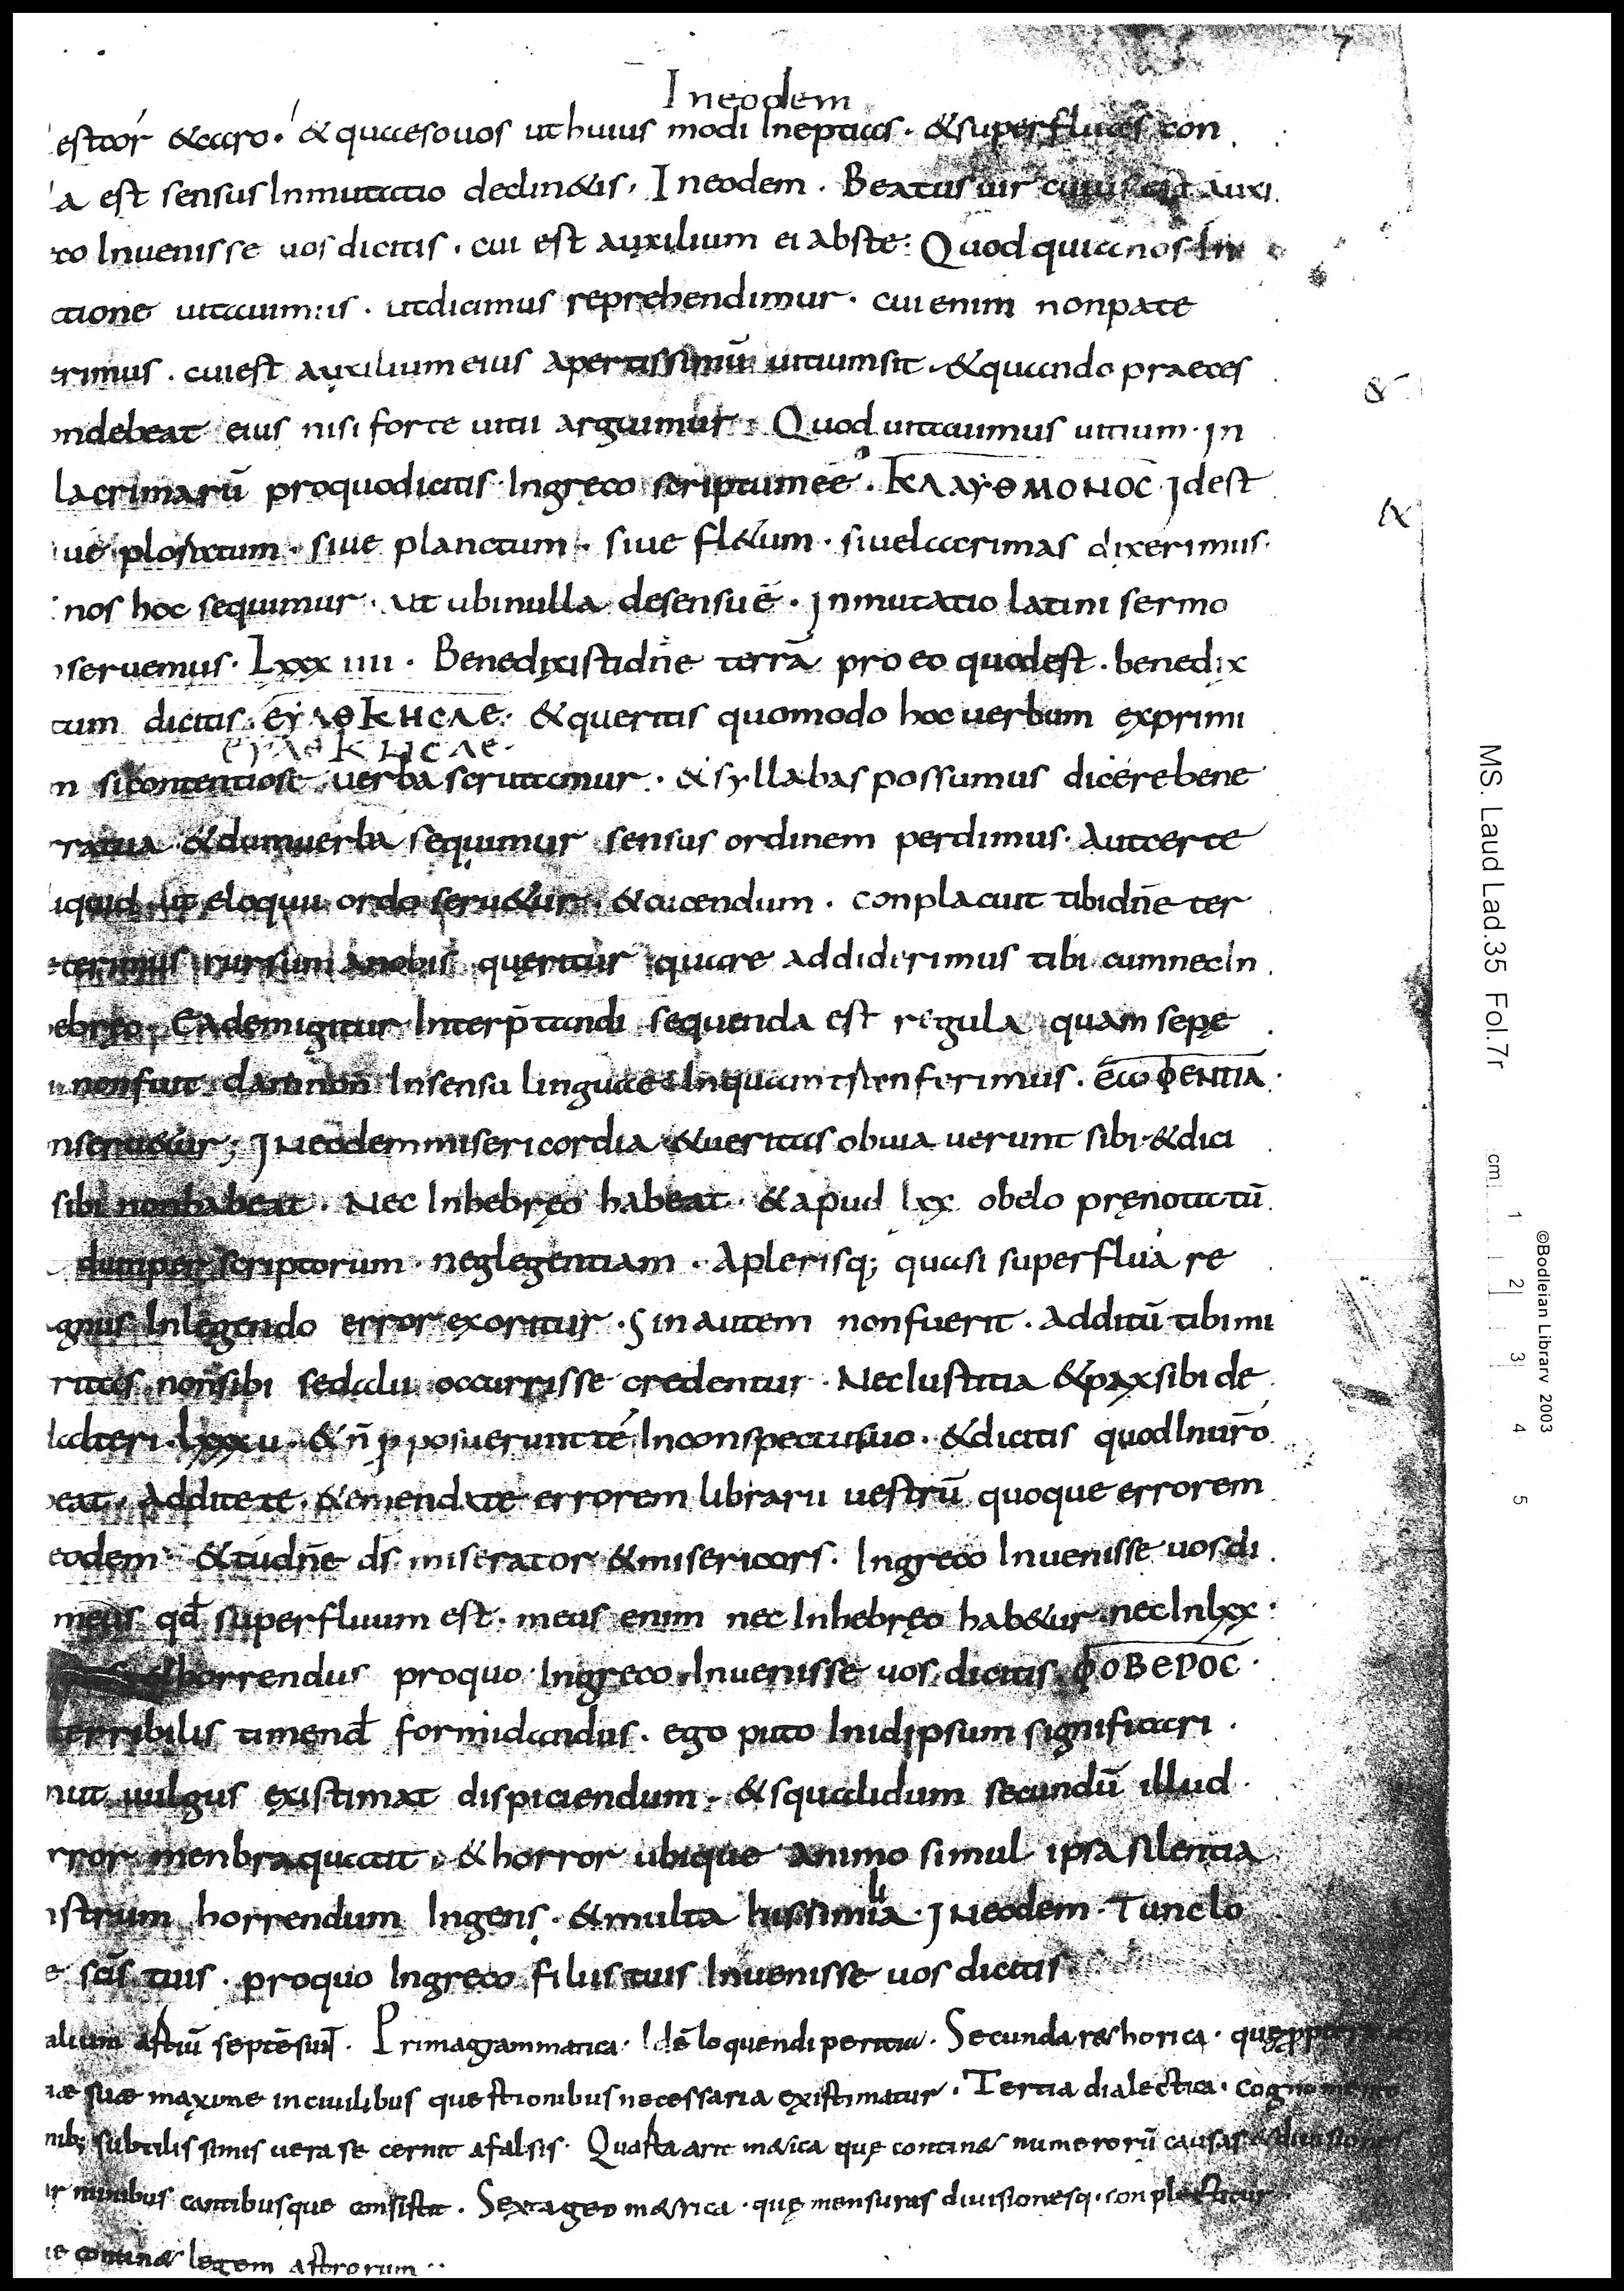 7
In eodem
estor & caro · & quaeso vos ut huius modi ineptias · & superfluas con
a est sensus Inmutatio declinetis, In eodem · Beatus uir cuius est auxi
ro Inuenisse uos dicitis · cui est auxilium ei abs te : Quod quia nos In
ctione uitauimus · ut dicimus reprehendimur · cui enim non pate
erimus · cui est auxilium eius apertissimū uitium sit · & quando praeces
ndebeat eius nisi forte uitii arguimur · Quod uitauimus uitium · in
lacrimarū pro quo dicitis Ingręco scriptum eē · ΚΛΑΥΘΜΟΝΟC Idest
ue plo tum · siue planctum · siue fl&um · siue lacrimas dixerimus ·
nos hoc sequimur · ut ubi nulla de sensu ē · Inmutatio latini sermo
seruemus · Lxxx iiii · Benedixisti dn̄e terrā pro eo quod est · benedix
tum dicitis · ΕΥΛΟΚΗCΑC · & queritis quomodo hoc uerbum exprimi
ΕΥΛΟΚΗCΑΕ ·
n si contentiose uerba scrutamur · & syllabas possumus dicere bene
ratua & dum uerba sequimur sensus ordinem perdimus · Aut certe
iquid ut eloquii ordo seru&ur · & aicendum · conplacuit tibi dn̄e ter
cerimus rursum a nobis queritur quare addiderimus tibi cum nec In
ebręo · Eadem igitur Interp̄tandi sequenda est regula quam sepę
non fuit damnon In sensu linguae In quam transferimus · ΕΥΦΕΝΤΙΑ ·
nseru&ur ; In eodem misericordia & ueritas obuia uerunt sibi · & dici
sibi non habeat · Nec In hebręo habeat · & apud lxx obelo pręnotatū
dum per scriptorum neglegentiam · A plerisq; quasi superflua re
gnus In legendo error exoritur · Sin autem non fuerit · additū tibi mi
ritas non sibi sed alii occurrisse credentur · Nec Iustitia & pax sibi de
lteri · Lxxx u · & n̄ p posuerunt te In conspectu suo · & dicitis quod In ur̄o
eat · Addite te · & emendate errorem librarii uestrū quoque errorem
eodem · & tu dn̄e ds̄ miserator & misericors · In gręco Inuenisse uos di
meus qd̄ superfluum est · meus enim nec In hebręo hab&ur nec In lxx ·
horrendus pro quo Ingręco Inuenisse uos dicitis ΦΟΒΕΡΟC ·
terribilis timend̄ formidandus · ego puto In id ipsum significari ·
n ut uulgus existimat dispiciendum · & squalidum secundū illud ·
rror menbra quatit · & horror ubique animo simul ipsa silentia
strum horrendum Ingens · & multa his similia · In eodem · Tunc lo
e scīs tuis · pro quo Ingręco filus tuis Inuenisse uos dicitis
alium astiū septē sun̄t · Prima grammatica · Idē loquendi peritia · Secunda r&horica · quę
iae suae maxime in ciuilibus questionibus necessaria existimatur · Tertia dialectica · cognomento
nib; subtilissimis uera secernit a falsis · Quarta arit m&ica quę contin& numerorū causas & diuisiones
r minibus cantibusque consistit · Sexta geo m&rica · quę mensuras diuisionesq · conplectitur
ue contin& legem astrorum ··
&
MS. Laud Lad.35 Fol.7r
cm 1 2 3 4 5
©Bodleian Library 2003